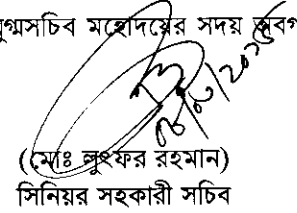 যুগ্মসচিব মহোদয়ের সদয় অবগ
(মোঃ লুৎফর রহমান)
সিনিয়র সহকারী সচিব